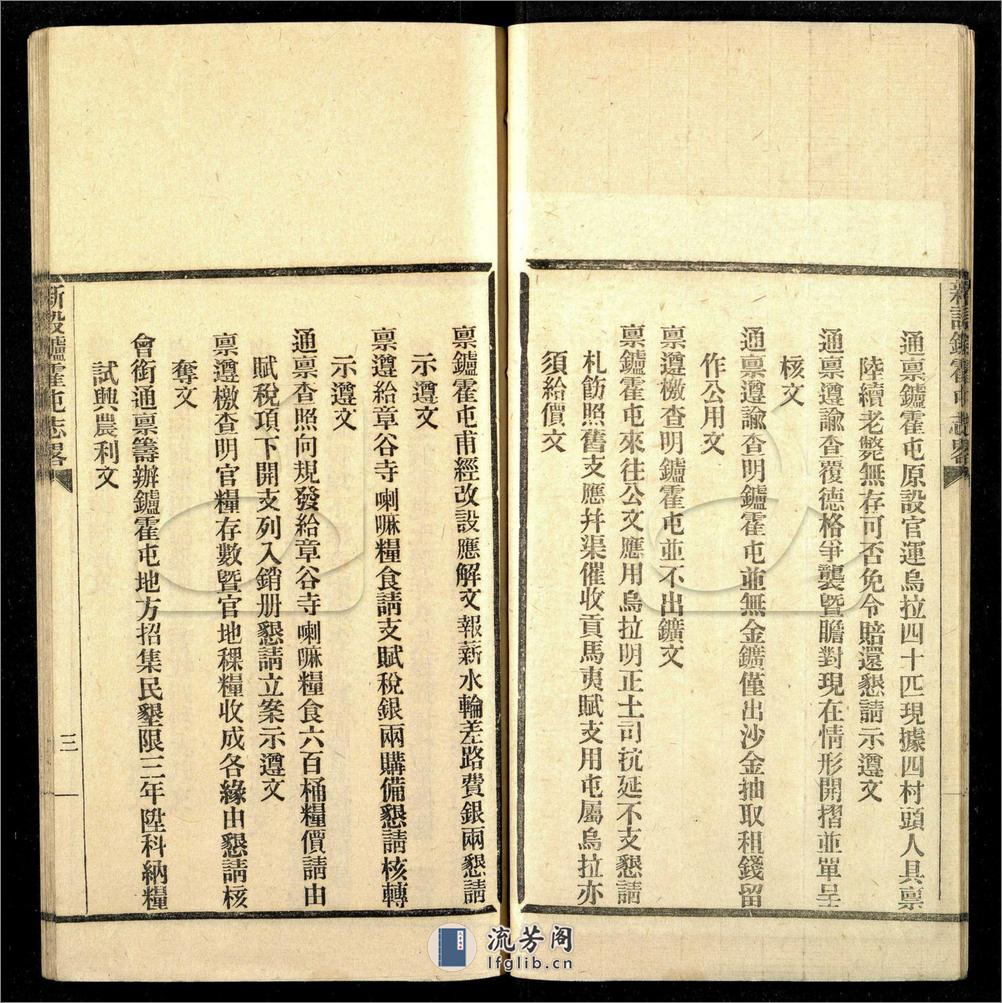 新設鑪霍屯志畧
通禀鑪霍屯原設官運烏拉四十匹現據四村頭人具禀
陸續老斃無存可否免令賠還懇請示遵文
通禀遵諭查覆德格爭襲暨瞻對現在情形開摺並單呈
核文
通禀遵諭查明鑪霍屯並無金鑛僅出沙金抽取租錢留
作公用文
禀遵檄查明鑪霍屯並不出鑛文
禀鑪霍屯來往公文應用烏拉明正土司抗延不支懇請
札飭照舊支應幷渠催收貢馬夷賦支用屯屬烏拉亦
須給價文
禀鑪霍屯甫經改設應解文報薪水輪差路費銀兩懇請
示遵文
禀遵給章谷寺喇嘛糧食請支賦稅銀兩購備懇請核轉
示遵文
通禀查照向規發給章谷寺喇嘛糧食六百桶糧價請由
賦稅項下開支列入銷册懇請立案示遵文
禀遵檄查明官糧存數暨官地稞糧收成各緣由懇請核
奪文
會銜通禀籌辦鑪霍屯地方招集民墾限三年陞科納糧
試興農利文
新設鑪霍屯志畧
三
流芳阁
lfglib.cn